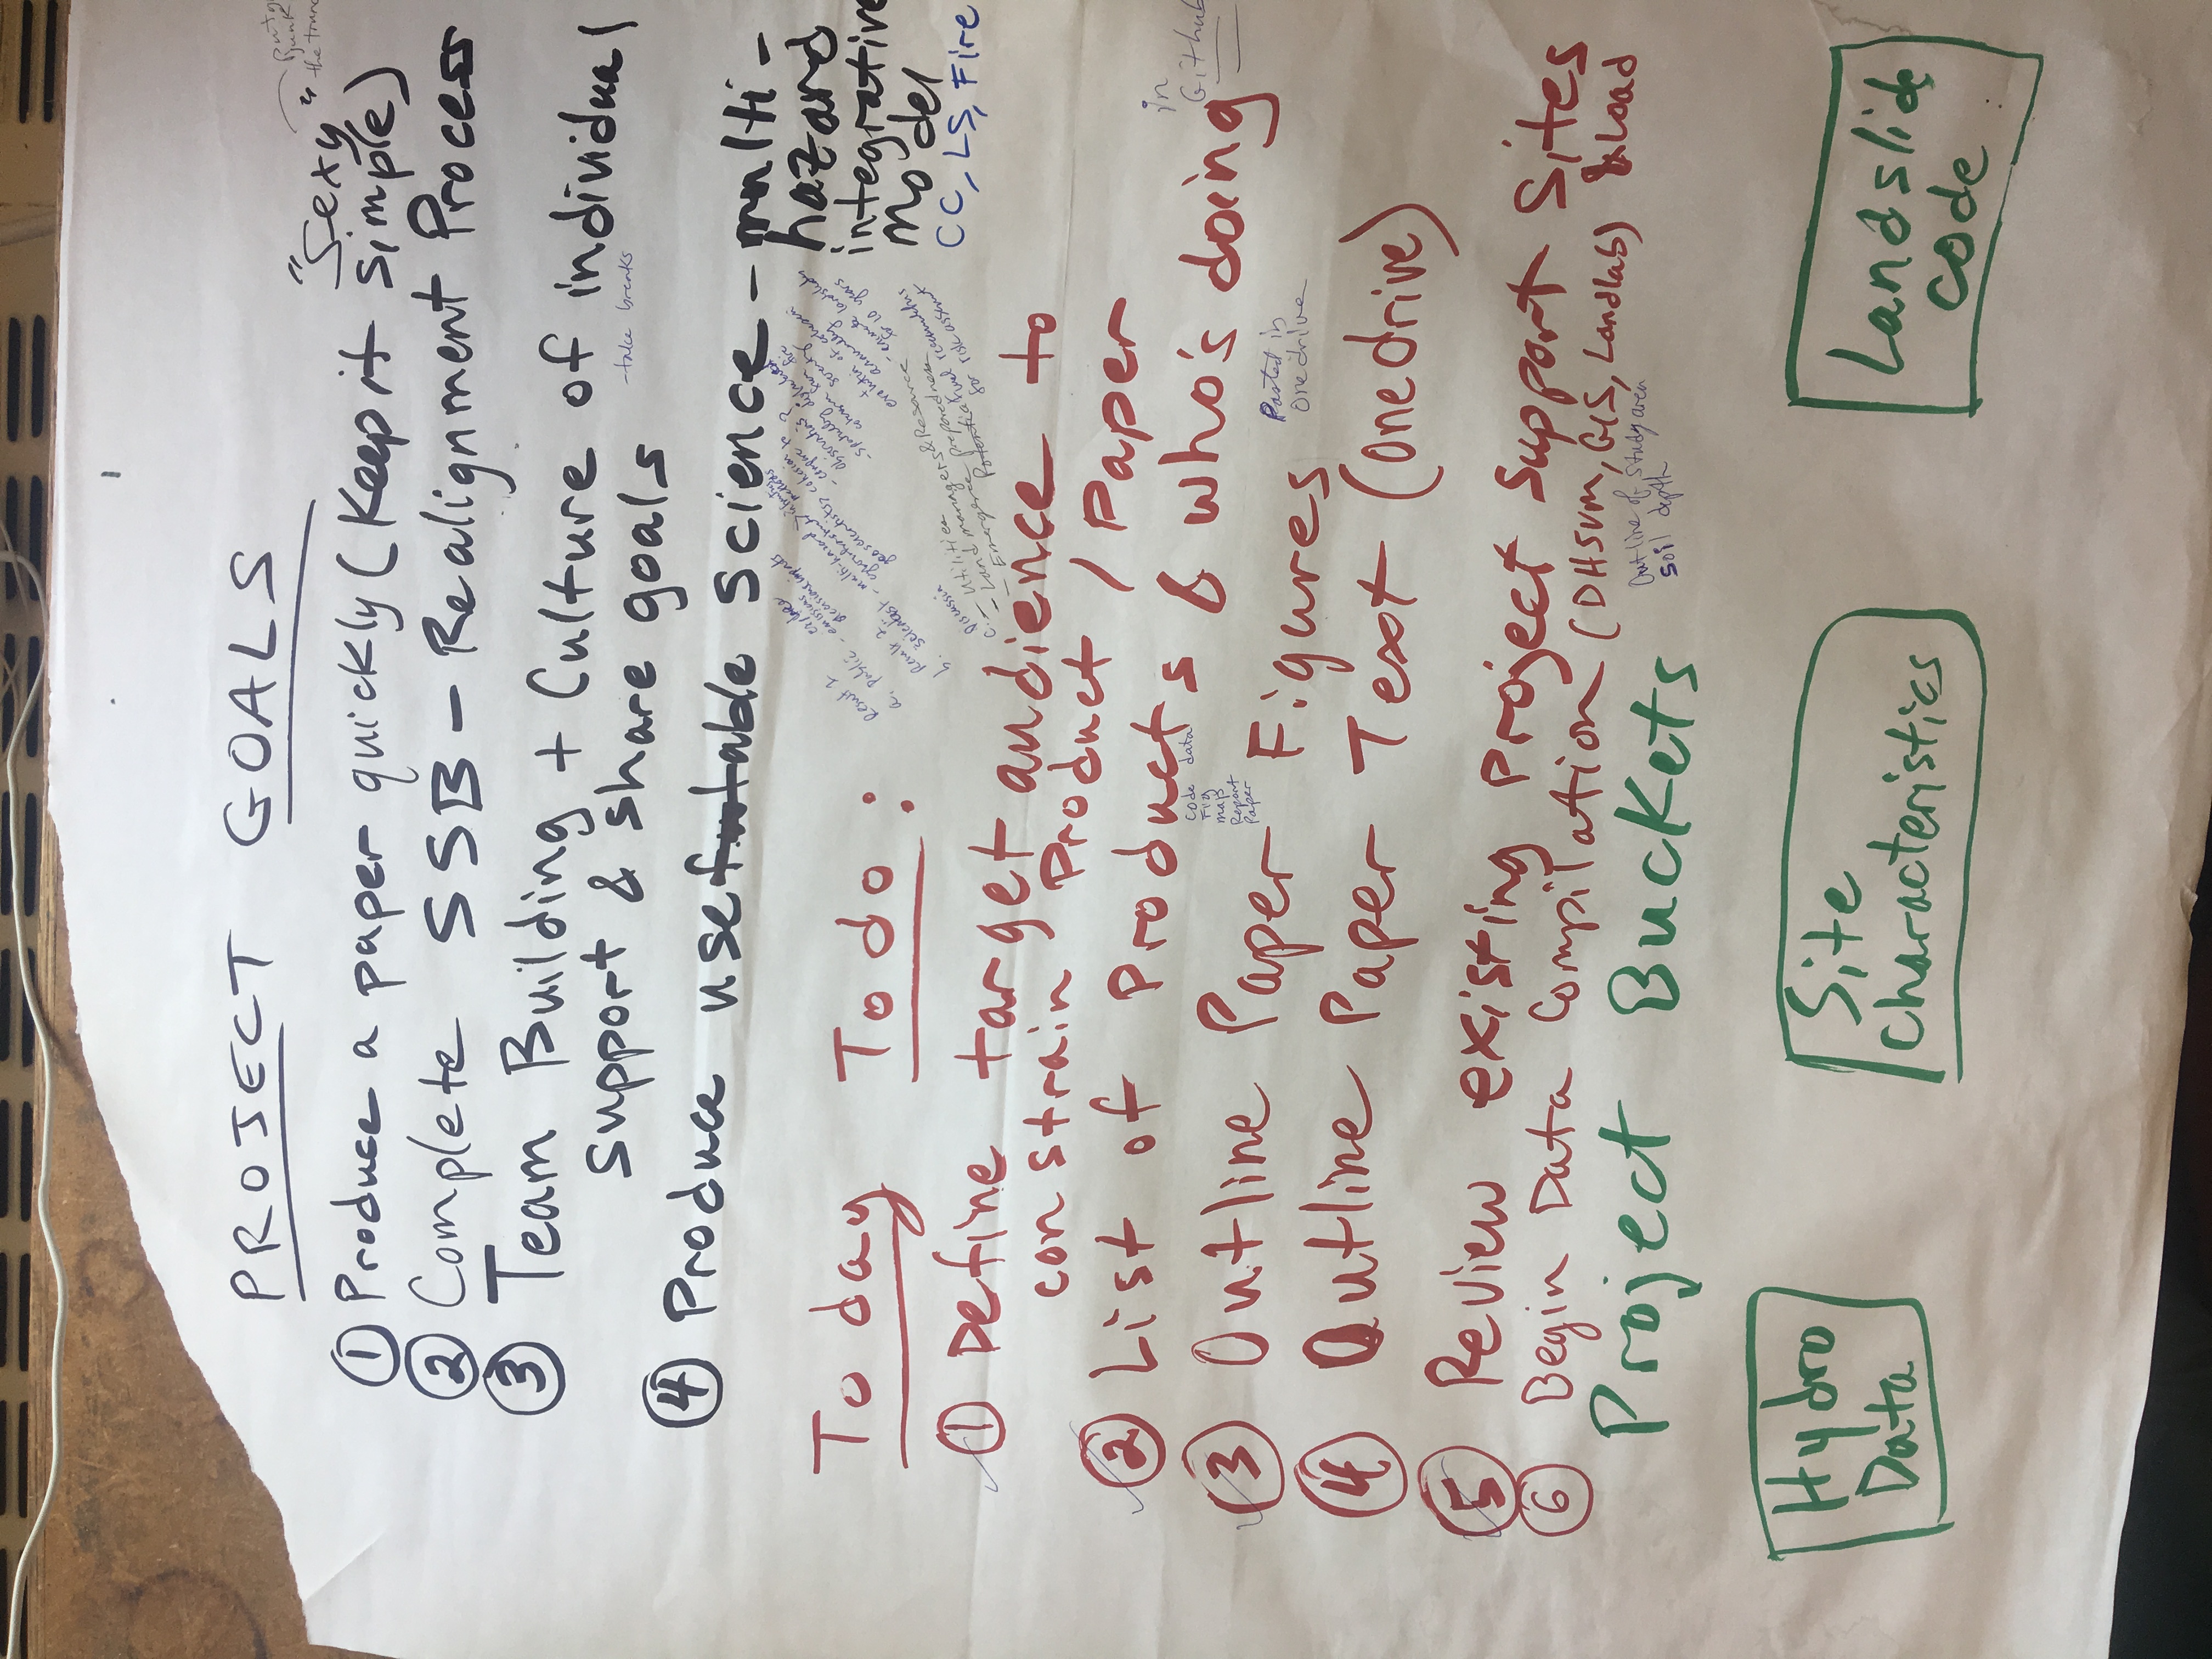 PROJECT GOALS
"Sexy"
the
① Produce a paper quickly (Keep it simple)
② Complete SSB - Realignment Process
③ Team Building + Culture of individual
support & share goals
- take breaks
④ Produce useable science - multi-
hazard
integrative
Model
CC, LS, Fire
Result 1
a. public - emissions
explore
decisions impacts
Result 2
b. scientist - multi-hazard
geoscientists, cohesion
- compare to
observations?
- spatially distributed
cohesion from fire
severity
evolution of cohesion
annually
- ensemble landslides
for 10 years
Discussion
c. - Utilities
- Land managers & Resource
- Emergence preparedness
for risk assessment
Today To do:
① Define target audience to
constrain Product / Paper
② List of Products & who's doing
in
Github
code data
Fig
map
Report
Paper
③ Outline Paper Figures
Pasted in
Onedrive
④ Outline Paper Text (Onedrive)
⑤ Review existing Project Support Sites
⑥ Begin Data Compilation (DHSVM, GIS, Landlab) & Load
Outline of study area
soil depth
Project Buckets
Hydro
Data
Site
Characteristics
Landslide
code